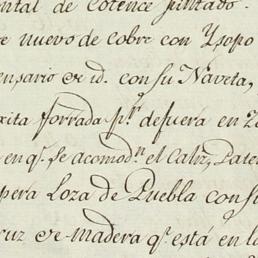 ntal de Cotence pintado.
e nuevo de cobre con Ysopo
ensario de id. con su Naveta,
xita forrada pr. defuera en
en qe. se acomodn. el Caliz, Paten
pera Loza de Puebla con su
ruz de madera qe. está en la